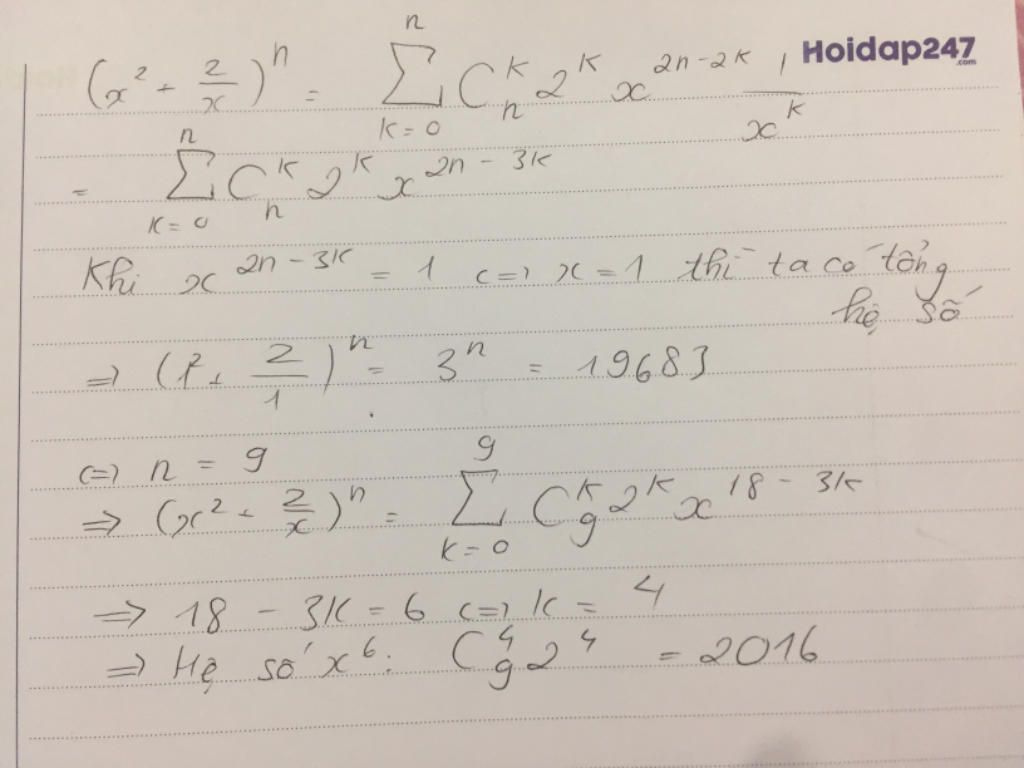 Hoidap247.com
(x² + 2/x)ⁿ = ∑_{k=0}^{n} C_n^k 2^k x^{2n-2k} 1/x^k
= ∑_{k=0}^{n} C_n^k 2^k x^{2n-3k}
Khi x^{2n-3k} = 1 <=> x = 1 thì ta có tổng
hệ số
=> (1² + 2/1)ⁿ = 3ⁿ = 19683
<=> n = 9
=> (x² + 2/x)ⁿ = ∑_{k=0}^{9} C_9^k 2^k x^{18-3k}
=> 18 - 3k = 6 <=> k = 4
=> Hệ số x⁶: C_9^4 2^4 = 2016